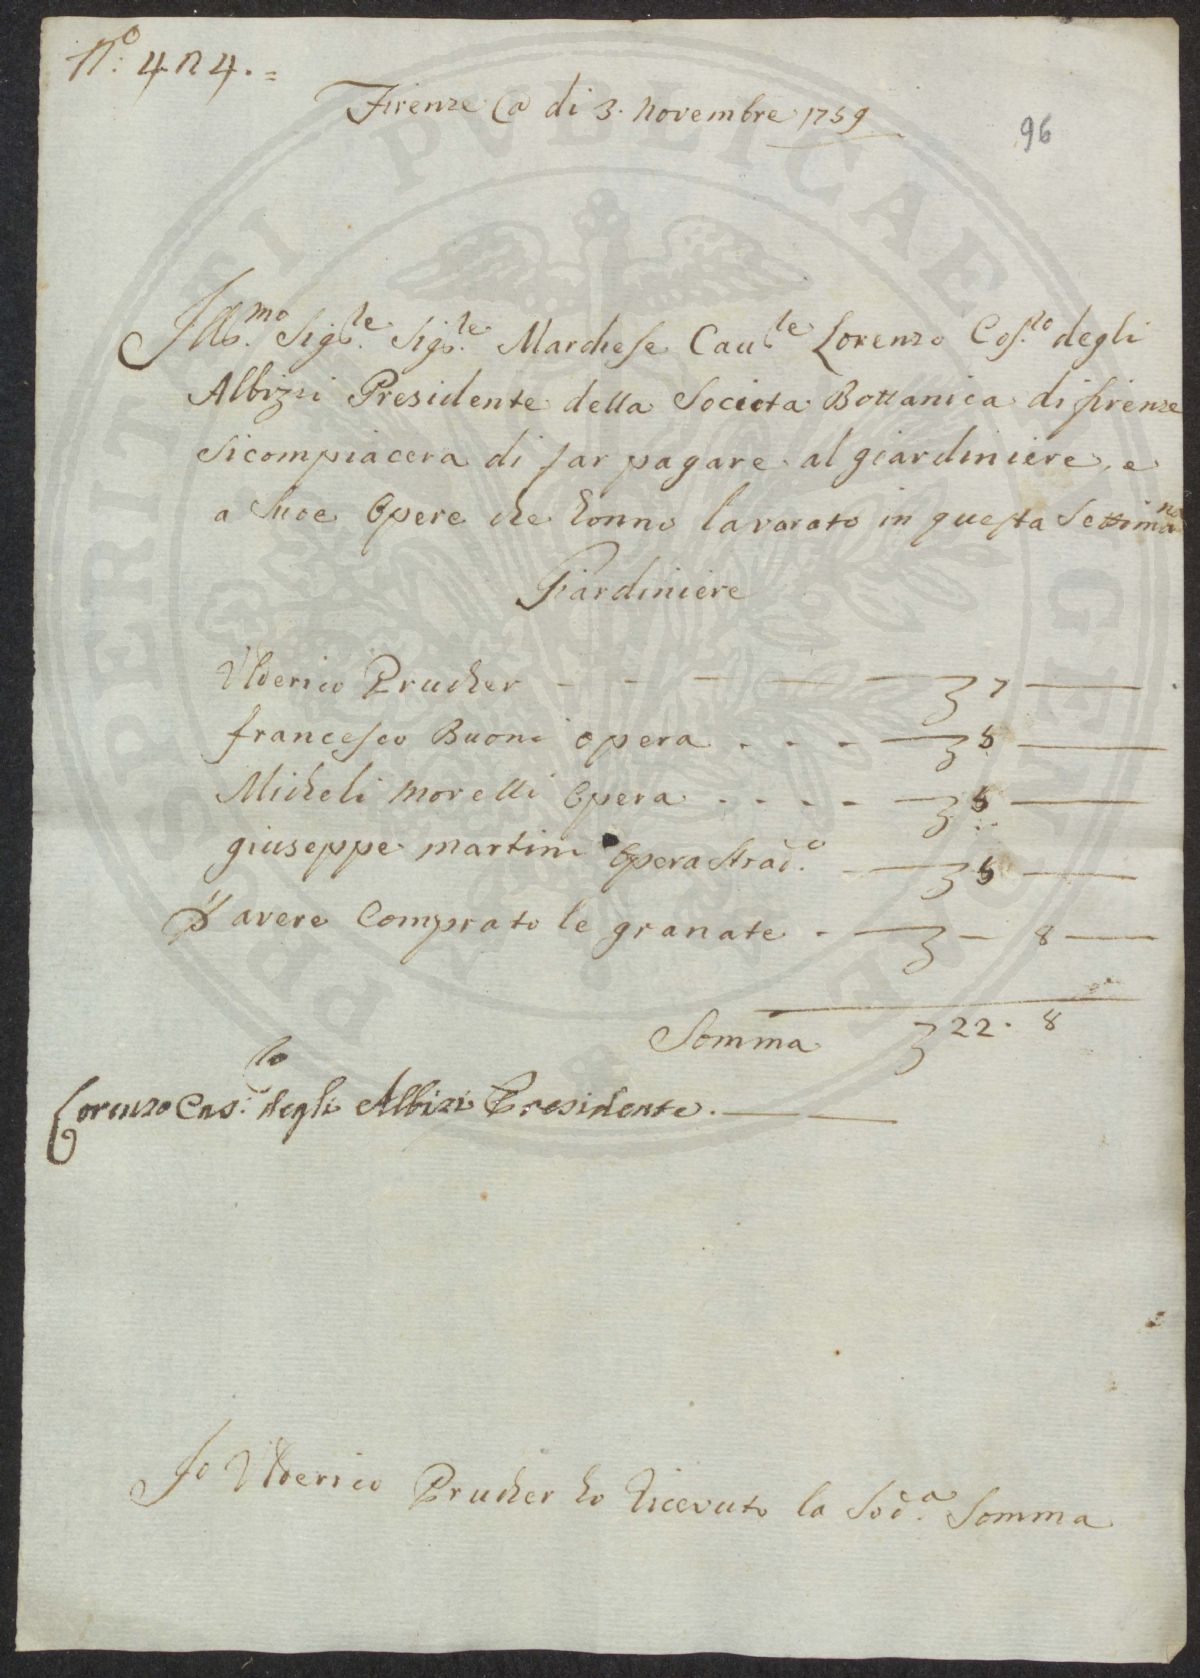 N.o 424.=
Firenze @ di 3. Novembre 1759
96
Ill.mo Sig.re Sig.re Marchese Cau.re Lorenzo Cos.to degli
Albizzi Presidente della Societa Bottanica di firenze
Sicompiacera di far pagare al giardiniere, e
a Suoe Opere che honno lavorato in questa Settimana
Giardiniere
Ulderico Prucher - - - - 7
francesco Buoni opera - - - 5
Micheli Morelli Opera - - - - 5
giuseppe martini Opera Strad.o 5
P avere Comprato le granate - - 8
Somma 22. 8
Lorenzo Cos.to degli Albizi Presidente.
Io Ulderico Prucher ho Ricevuto la Sod.a Somma
PERITI PVBLICAE